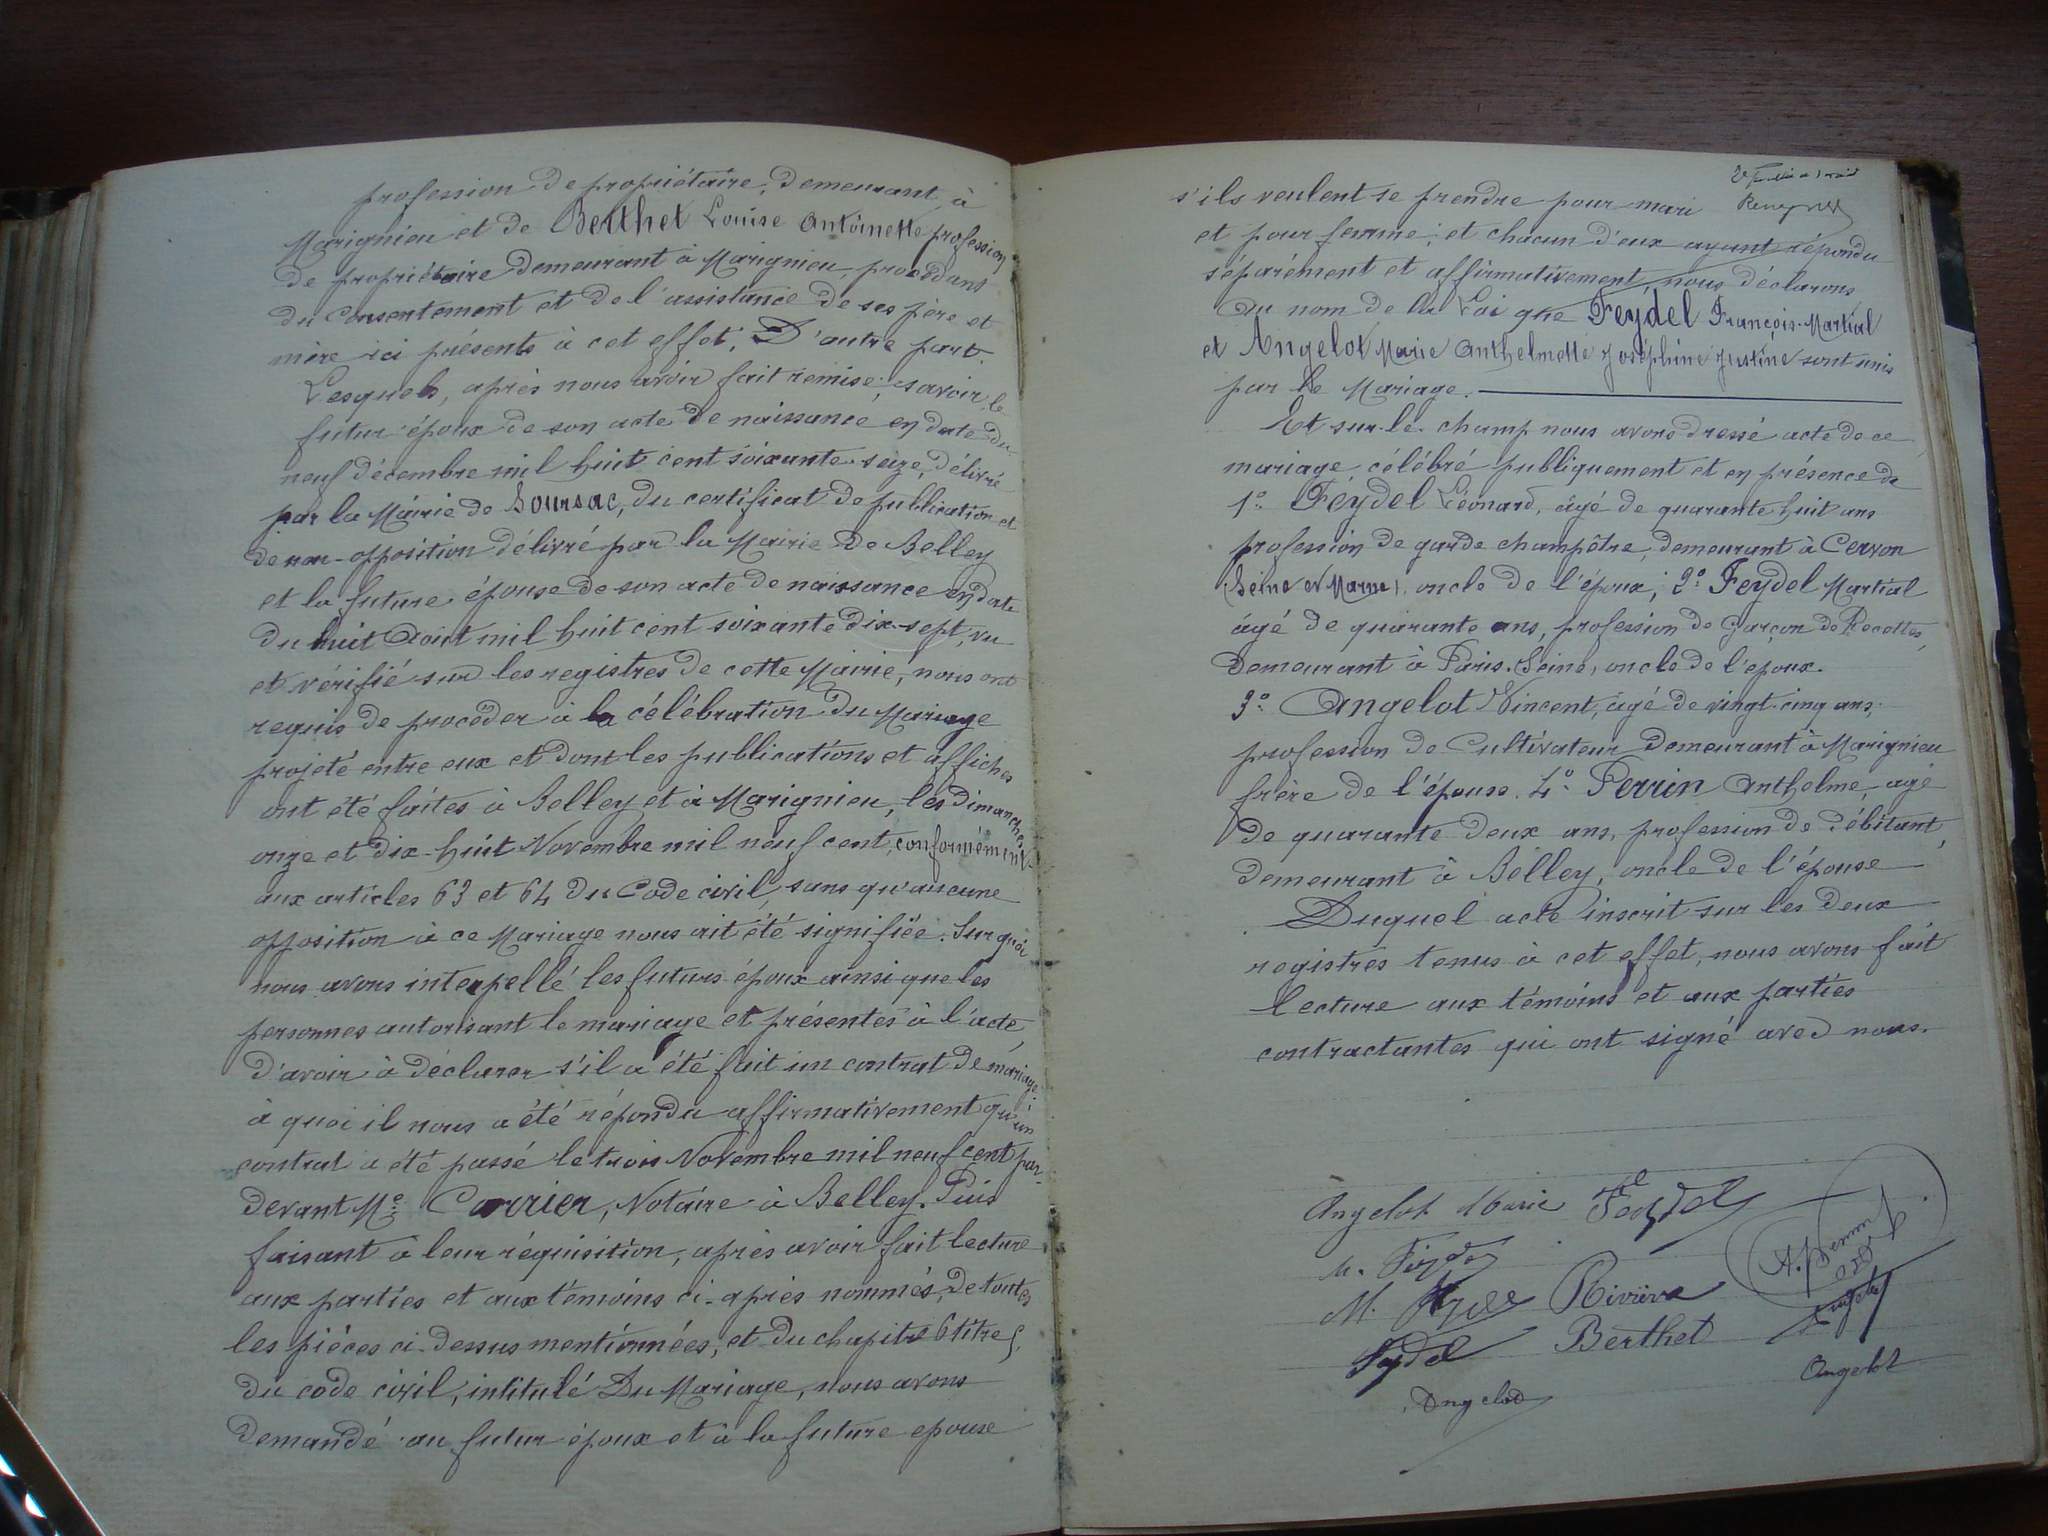 profession de propriétaire, demeurant à
Marignieu et de Berthet Louise Antoinette profession
de propriétaire demeurant à Marignieu, procédant
du consentement et de l'assistance de ses père et
mère ici présents à cet effet; D'autre part.
Lesquels, après nous avoir fait remise; savoir le
futur époux de son acte de naissance en date du
neuf décembre mil huit cent soixante seize, délivré
par la Mairie de Soursac, du certificat de publication et
de non-opposition délivré par la Mairie de Belley
et la future épouse de son acte de naissance en date
du huit Août mil huit cent soixante dix-sept, vu
et vérifié sur les registres de cette Mairie, nous ont
requis de procéder à la célébration du Mariage
projeté entre eux et dont les publications et affiches
ont été faites à Belley et à Marignieu, les dimanches
onze et dix-huit Novembre mil neuf cent, conformément
aux articles 63 et 64 du Code civil, sans qu'aucune
opposition à ce Mariage nous ait été signifiée. Sur quoi
nous avons interpellé les futurs époux ainsi que les
personnes autorisant le mariage et présentes à l'acte,
d'avoir à déclarer s'il a été fait un contrat de mariage;
à quoi il nous a été répondu affirmativement qu'un
contrat a été passé le trois Novembre mil neuf cent par-
devant Me Carrier, Notaire à Belley. Puis
faisant à leur réquisition, après avoir fait lecture
aux parties et aux témoins ci-après nommés, de toutes
les pièces ci-dessus mentionnées, et du chapitre 6 titre 5.
du code civil, intitulé Du Mariage, nous avons
demandé au futur époux et à la future epouse
s'ils veulent se prendre pour mari
et pour femme; et chacun d'eux ayant répondu
séparément et affirmativement, nous déclarons
au nom de la Loi que Feydel François-Martial
et Angelot Marie Anthelmette Joséphine Justine sont unis
par le Mariage.
Et sur-le-champ nous avons dressé acte de ce
mariage célébré publiquement et en présence de
1° Feydel Léonard, âgé de quarante huit ans
profession de garde champêtre, demeurant à Cervon
(Seine et Marne), oncle de l'époux; 2° Feydel Martial
âgé de quarante ans, profession de garçon de Recettes,
demeurant à Paris. Seine, oncle de l'epoux.
3° Angelot Vincent, âgé de vingt-cinq ans,
profession de Cultivateur demeurant à Marignieu
frère de l'épouse. 4° Perrin Anthelme, agé
de quarante deux ans, profession de débitant,
demeurant à Belley, oncle de l'épouse
Duquel acte inscrit sur les deux
registres tenus à cet effet, nous avons fait
lecture aux témoins et aux parties
contractantes qui ont signé avec nous.
Angelot Marie Feydel
A. Perrin
M. Feydel
M. Rivière
Angelot
Feydel Berthet
Angelot
Angelot